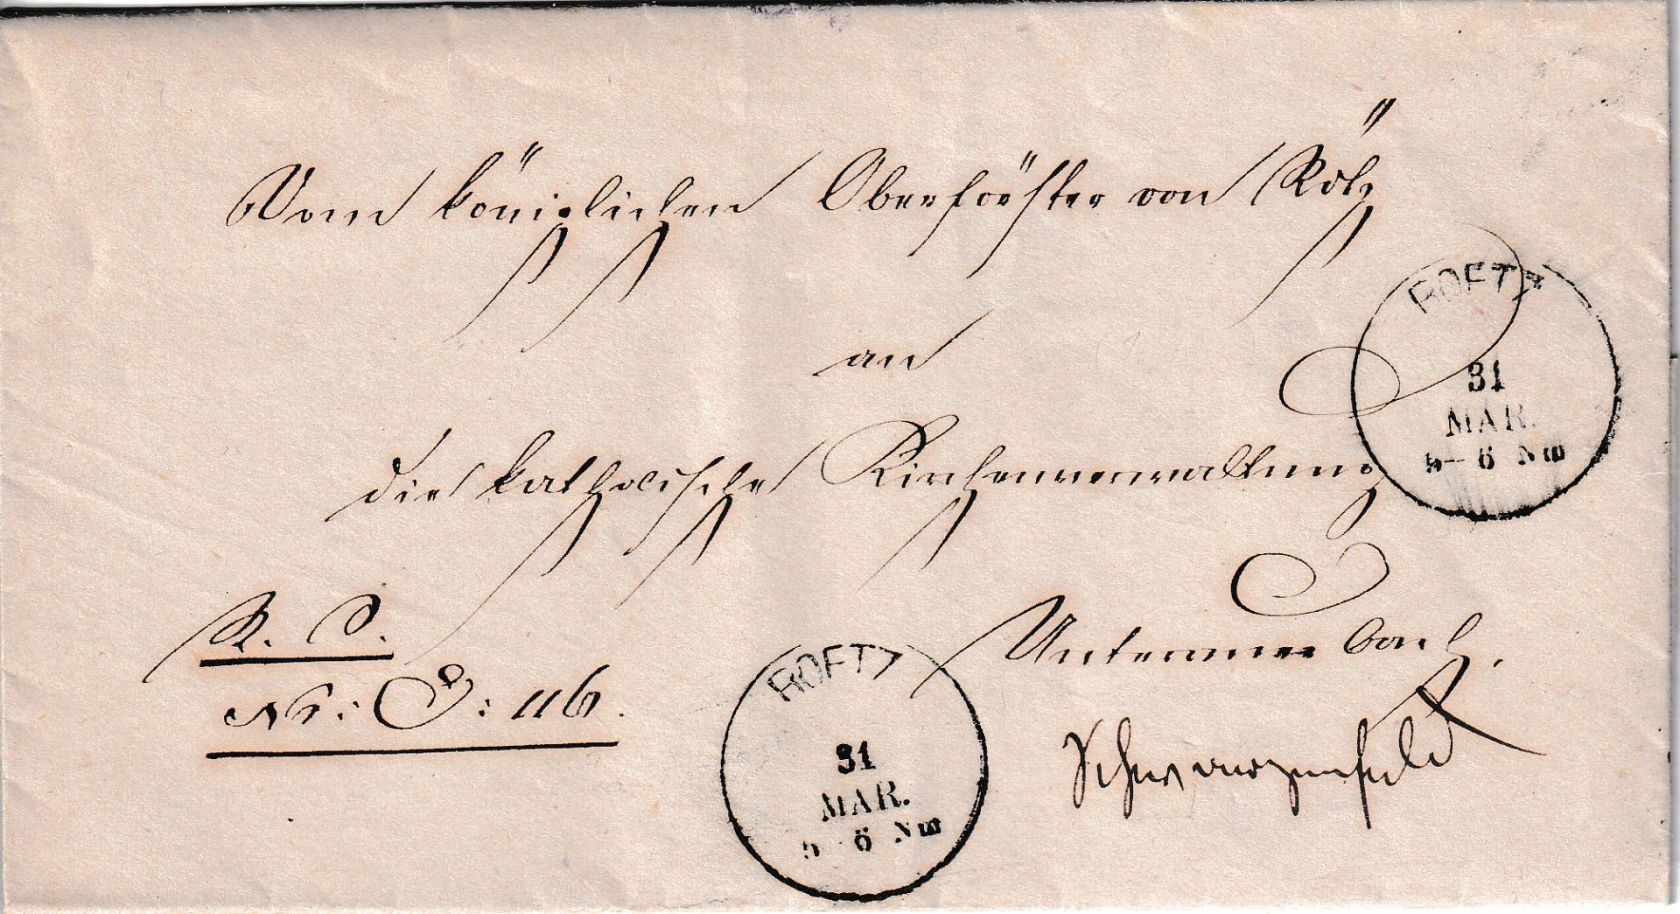 Vom königlichen Oberförster von Rötz
an
die katholische Kirchenverwaltung
Unterauerbach.
Schwarzenfeld
R. S.
Nr: E: 116.
ROETZ
31
MAR.
5-6 Nm
ROETZ
31
MAR.
5-6 Nm